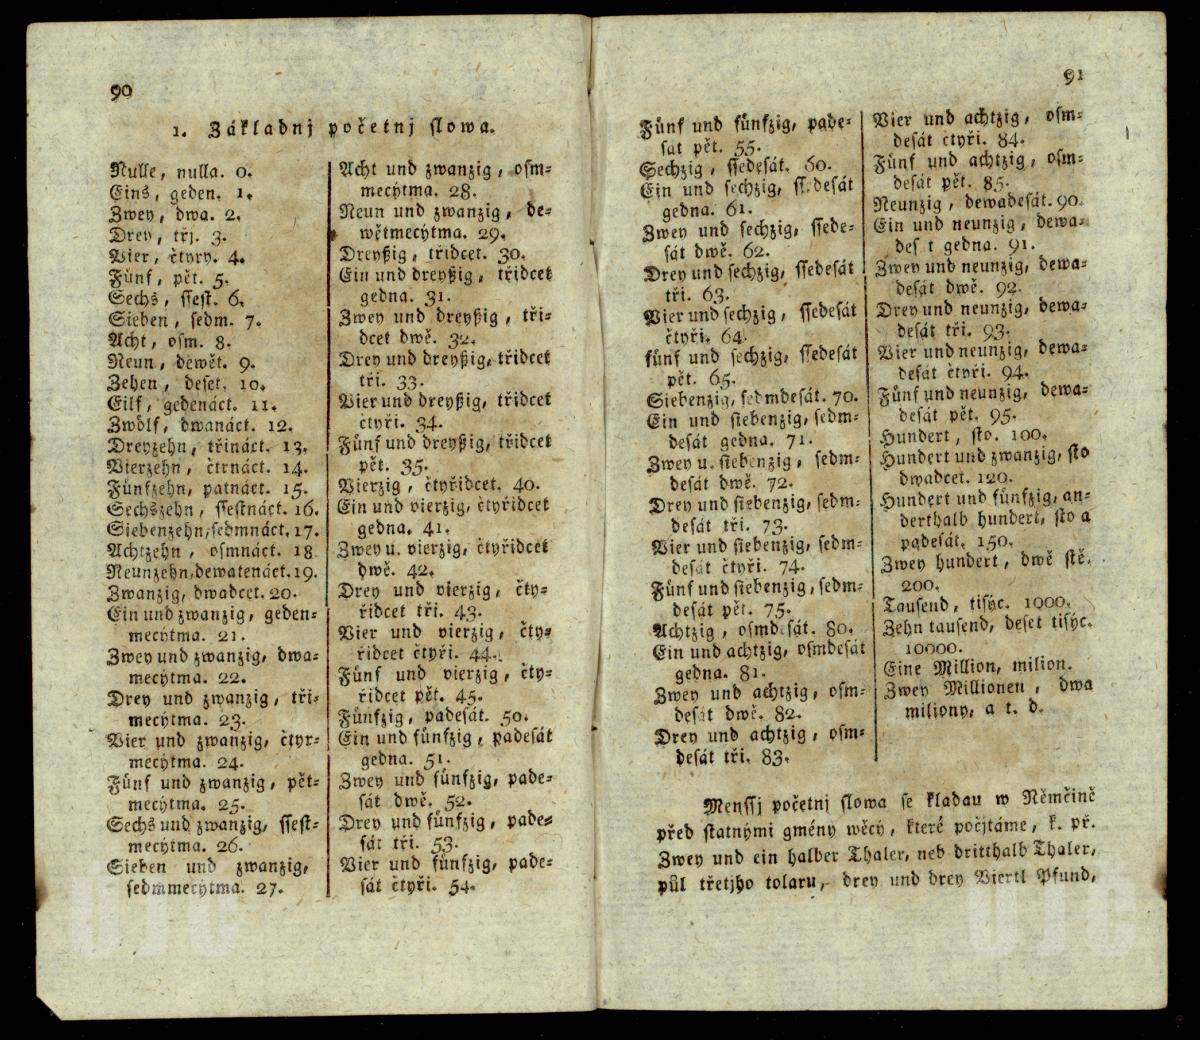 90
1. Základnj početnj slowa.
Nulle, nulla. 0.
Eins, geden. 1.
Zwey, dwa. 2.
Drey, třj. 3.
Vier, čtyry. 4.
Fünf, pět. 5.
Sechs, ssest. 6.
Sieben, sedm. 7.
Acht, osm. 8.
Neun, dewět. 9.
Zehen, deset. 10.
Eilf, gedenáct. 11.
Zwölf, dwanáct. 12.
Dreyzehn, třináct. 13.
Vierzehn, čtrnáct. 14.
Fünfzehn, patnáct. 15.
Sechszehn, ssestnáct. 16.
Siebenzehn, sedmnáct. 17.
Achtzehn, osmnáct. 18
Neunzehn, dewatenáct. 19.
Zwanzig, dwadcet. 20.
Ein und zwanzig, geden=
mecytma. 21.
Zwey und zwanzig, dwa=
mecytma. 22.
Drey und zwanzig, tři=
mecytma. 23.
Vier und zwanzig, čtyr=
mecytma. 24.
Fünf und zwanzig, pět=
mecytma. 25.
Sechs und zwanzig, ssest=
mecytma. 26.
Sieben und zwanzig,
sedmmecytma. 27.
Acht und zwanzig, osm=
mecytma. 28.
Neun und zwanzig, de=
wětmecytma. 29.
Dreyßig, třidcet. 30.
Ein und dreyßig, třidcet
gedna. 31.
Zwey und dreyßig, tři=
dcet dwě. 32.
Drey und dreyßig, třidcet
tři. 33.
Vier und dreyßig, třidcet
čtyři. 34.
Fünf und dreyßig, třidcet
pět. 35.
Vierzig, čtyřidcet. 40.
Ein und vierzig, čtyřidcet
gedna. 41.
Zwey u. vierzig, čtyřidcet
dwě. 42.
Drey und vierzig, čty=
řidcet tři. 43.
Vier und vierzig, čty=
řidcet čtyři. 44.
Fünf und vierzig, čty=
řidcet pět. 45.
Fünfzig, padesát. 50.
Ein und fünfzig, padesát
gedna. 51.
Zwey und fünfzig, pade=
sát dwě. 52.
Drey und fünfzig, pade=
sát tři. 53.
Vier und fünfzig, pade=
sát čtyři. 54.
91
Fünf und fünfzig, pade=
sát pět. 55.
Sechzig, ssedesát. 60.
Ein und sechzig, ss.desát
gedna. 61.
Zwey und sechzig, ssede=
sát dwě. 62.
Drey und sechzig, ssedesát
tři. 63.
Vier und sechzig, ssedesát
čtyři. 64.
fünf und sechzig, ssedesát
pět. 65.
Siebenzig, sedmdesát. 70.
Ein und siebenzig, sedm=
desát gedna. 71.
Zwey u. siebenzig, sedm=
desát dwě. 72.
Drey und siebenzig, sedm=
desát tři. 73.
Vier und siebenzig, sedm=
desát čtyři. 74.
Fünf und siebenzig, sedm=
desát pět. 75.
Achtzig, osmd.sát. 80.
Ein und achtzig, osmdesát
gedna. 81.
Zwey und achtzig, osm=
desát dwě. 82.
Drey und achtzig, osm=
desát tři. 83.
Vier und achtzig, osm=
desát čtyři. 84.
Fünf und achtzig, osm=
desát pět. 85.
Neunzig, dewadesát. 90.
Ein und neunzig, dewa=
des t gedna. 91.
Zwey und neunzig, dewa=
desát dwě. 92.
Drey und neunzig, dewa=
desát tři. 93.
Vier und neunzig, dewa=
desát čtyři. 94.
Fünf und neunzig, dewa=
desát pět. 95.
Hundert, sto. 100.
Hundert und zwanzig, sto
dwadcet. 120.
Hundert und fünfzig, an=
derthalb hundert, sto a
padesát. 150.
Zwey hundert, dwě stě.
200.
Tausend, tisýc. 1000.
Zehn tausend, deset tisýc.
10000.
Eine Million, milion.
Zwey Millionen, dwa
miliony, a t. d.
Menssj početnj slowa se kladau w Němčině
před statnými gmény wěcý, které počjtáme, k. př.
Zwey und ein halber Thaler, neb dritthalb Thaler,
půl třetjho tolaru, drey und drey Viertl Pfund,